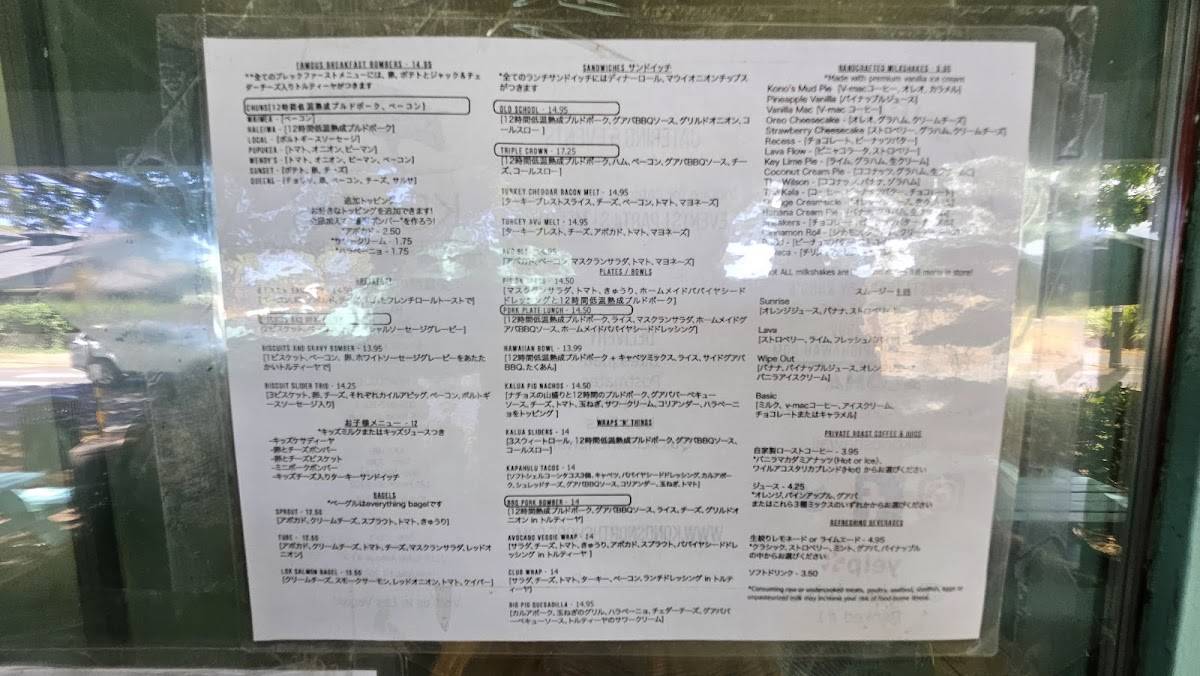 FAMOUS BREAKFAST BOMBERS - 14.95
**全てのブレックファーストメニューには、卵、ポテトとジャック＆チェ
ダーチーズ入りトルティーヤがつきます
CHUNS[12時間低温熟成プルドポーク、ベーコン]
WAIMEA - [ベーコン]
HALEIWA - [12時間低温熟成プルドポーク]
LOCAL - [ポルトギースソーセージ]
PUPUKEA - [トマト、オニオン、ピーマン]
WENDY'S - [トマト、オニオン、ピーマン、ベーコン]
SUNSET - [ポテト、卵、チーズ]
QUEENS - [チョリソ、卵、ベーコン、チーズ、サルサ]
追加トッピング
お好きなトッピングを追加できます!
ボンバー"を作ろう!
*アボカド - 2.50
*サワークリーム - 1.75
*ハラペーニョ - 1.75
BREAKFAST
フレンチロールトーストで]
ソーセージグレービー]
BISCUITS AND GRAVY BOMBER - 13.95
[1ビスケット、ベーコン、卵、ホワイトソーセージグレービーをあたた
かいトルティーヤで]
BISCUIT SLIDER TRIO - 14.25
[3ビスケット、卵、チーズ、それぞれカイルアピッグ、ベーコン、ポルトギ
ースソーセージ入り]
お子様メニュー - 12
*キッズミルクまたはキッズジュースつき
-キッズケサディーヤ
-卵とチーズボンバー
-卵とチーズビスケット
-ミニポークボンバー
-キッズチーズ入りターキーサンドイッチ
BAGELS
*ベーグルはeverything bagelです
SPROUT - 13.50
[アボカド、クリームチーズ、スプラウト、トマト、きゅうり]
TUBE - 13.50
[アボカド、クリームチーズ、トマト、チーズ、マスクランサラダ、レッドオ
ニオン]
LOX SALMON BAGEL - 13.50
[クリームチーズ、スモークサーモン、レッドオニオン、トマト、ケイパー]
SANDWICHES サンドイッチ
*全てのランチサンドイッチにはディナーロール、マウイオニオンチップス
がつきます
OLD SCHOOL - 14.95
[12時間低温熟成プルドポーク、グアバBBQソース、グリルドオニオン、コ
ールスロー ]
TRIPLE CROWN - 17.25
[12時間低温熟成プルドポーク、ハム、ベーコン、グアバBBQソース、チー
ズ、コールスロー]
TURKEY CHEDDAR BACON MELT - 14.95
[ターキーブレストスライス、チーズ、ベーコン、トマト、マヨネーズ]
TURKEY AVO MELT - 14.95
[ターキーブレスト、チーズ、アボカド、トマト、マヨネーズ]
[アボカド、ベーコン マスクランサラダ、トマト、マヨネーズ]
PLATES / BOWLS
[マスクランサラダ、トマト、きゅうり、ホームメイドパパイヤシード
ドレッシングと12時間低温熟成プルドポーク]
PORK PLATE LUNCH - 14.50
[12時間低温熟成プルドポーク、ライス、マスクランサラダ、ホームメイドグ
アバBBQソース、ホームメイドパパイヤシードドレッシング]
HAWAIIAN BOWL - 13.99
[12時間低温熟成プルドポーク + キャベツミックス、ライス、サイドグアバ
BBQ、たくあん]
KALUA PIG NACHOS - 14.50
[ナチョスの山盛りと12時間のプルドポーク、グアババーベキュー
ソース、チーズ、トマト、玉ねぎ、サワークリーム、コリアンダー、ハラペーニ
ョをトッピング ]
WRAPS 'N' THINGS
KALUA SLIDERS - 14
[3スウィートロール、12時間低温熟成プルドポーク、グアバBBQソース、
コールスロー]
KAPAHULU TACOS - 14
[ソフトシェルコーンタコス3個、キャベツ、パパイヤシードドレッシング、カルアポー
ク、シュレッドチーズ、グアバBBQソース、コリアンダー、玉ねぎ、トマト]
BBQ PORK BOMBER - 14
[12時間低温熟成プルドポーク、グアバBBQソース、ライス、チーズ、グリルドオ
ニオン in トルティーヤ]
AVOCADO VEGGIE WRAP - 14
[サラダ、チーズ、トマト、きゅうり、アボカド、スプラウト、パパイヤシードドレ
ッシング in トルティーヤ]
CLUB WRAP - 14
[サラダ、チーズ、トマト、ターキー、ベーコン、ランチドレッシング in トルテ
ィーヤ]
BIG PIG QUESADILLA - 14.95
[カルアポーク、玉ねぎのグリル、ハラペーニョ、チェダーチーズ、グアババ
ーベキューソース、トルティーヤのサワークリーム]
HANDCRAFTED MILKSHAKES - 9.95
*Made with premium vanilla ice cream
Kono's Mud Pie - [V-macコーヒー, オレオ, カラメル]
Pineapple Vanilla [パイナップルジュース]
Vanilla Mac [V-mac コーヒー]
Oreo Cheesecake - [オレオ, グラハム, クリームチーズ]
Strawberry Cheesecake [ストロベリー, グラハム, クリームチーズ]
Recess - [チョコレート, ピーナッツバター]
Lava Flow - [ピニャコラータ, ストロベリー]
Key Lime Pie - [ライム, グラハム, 生クリーム]
Coconut Cream Pie - [ココナッツ, グラハム, 生クリーム]
Wilson - [ココナッツ, バナナ, グラハム]
Kala - [コーヒー, バナナ, バター, チョコレート]
Creamsicle - [オレンジジュース,
Banana Cream Pie - [バナナ,
Cinnamon Roll - [シナモン,
ALL milkshakes are full menu in store!
スムージー 9.95
Sunrise
[オレンジジュース, バナナ, ストロベリー]
Lava
[ストロベリー, ライム, フレッシュ
Wipe Out
[バナナ, パイナップルジュース, オレンジ
バニラアイスクリーム]
Basic
[ミルク, v-macコーヒー, アイスクリーム,
チョコレートまたはキャラメル]
PRIVATE ROAST COFFEE & JUICE
自家製ローストコーヒー - 3.95
*バニラマカダミアナッツ(Hot or Ice)、
ワイルアコスタリカブレンド(Hot) からお選びください
ジュース - 4.25
*オレンジ、パインアップル、グアバ
またはこれら3種ミックスのいずれかからお選びください
REFRESHING BEVERAGES
生絞りレモネード or ライムエード - 4.95
*クラシック, ストロベリー, ミント, グアバ, パイナップル
の中からお選びください
ソフトドリンク - 3.50
*Consuming raw or undercooked meats, poultry, seafood, shellfish, eggs or
unpasteurized milk may increase your risk of food-borne illness.